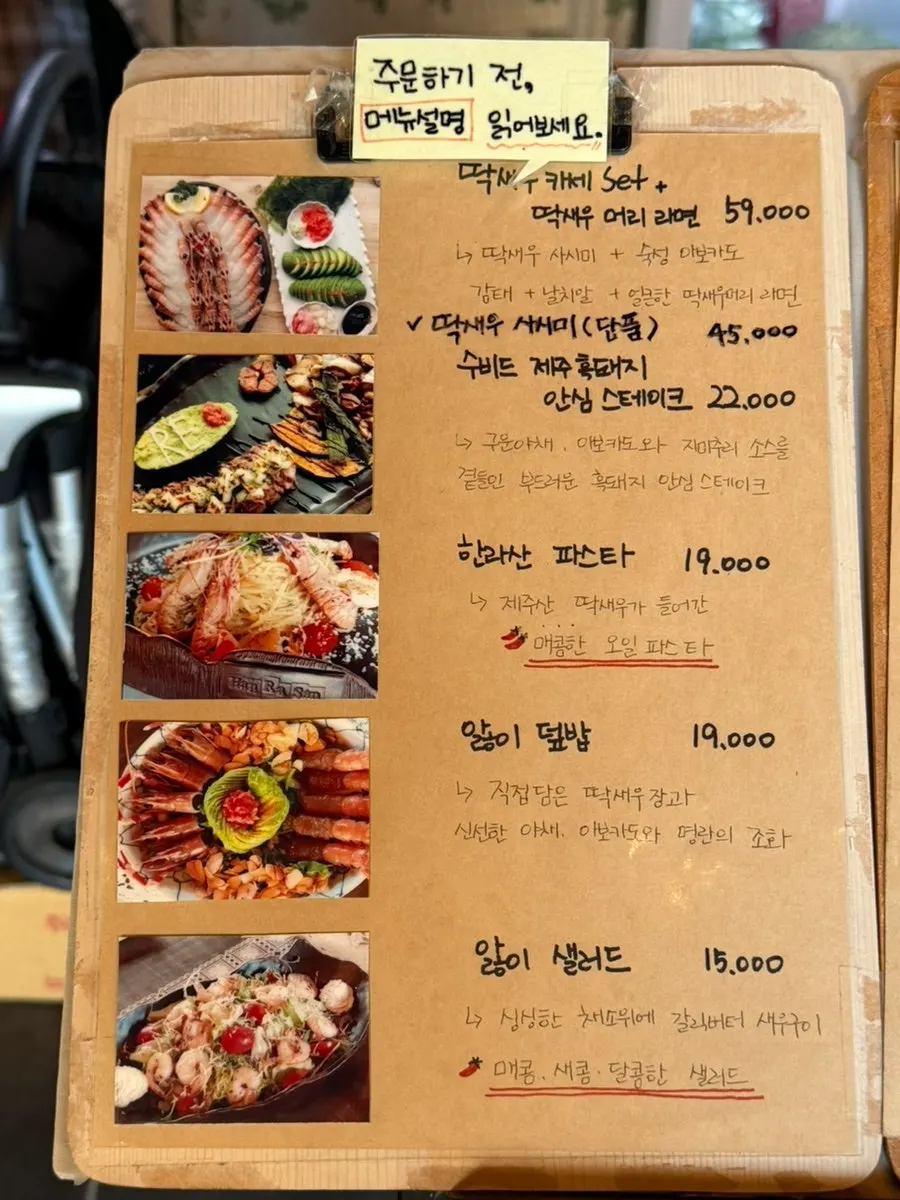 주문하기 전,
메뉴설명 읽어보세요.
딱새우카세 Set +
딱새우 머리 라면 59.000
↳ 딱새우 사시미 + 숙성 아보카도
감태 + 날치알 + 얼큰한 딱새우머리 라면
✓ 딱새우 사시미(단품) 45.000
수비드 제주흑돼지
안심 스테이크 22.000
↳ 구운야채, 아보카도와 치미추리 소스를
곁들인 부드러운 흑돼지 안심 스테이크
한라산 파스타 19.000
↳ 제주산 딱새우가 들어간
매콤한 오일 파스타
Han Ra San
앓이 덮밥 19.000
↳ 직접담은 딱새우장과
신선한 야채, 아보카도와 명란의 조화
앓이 샐러드 15.000
↳ 싱싱한 채소위에 갈릭버터 새우구이
매콤·새콤·달콤한 샐러드